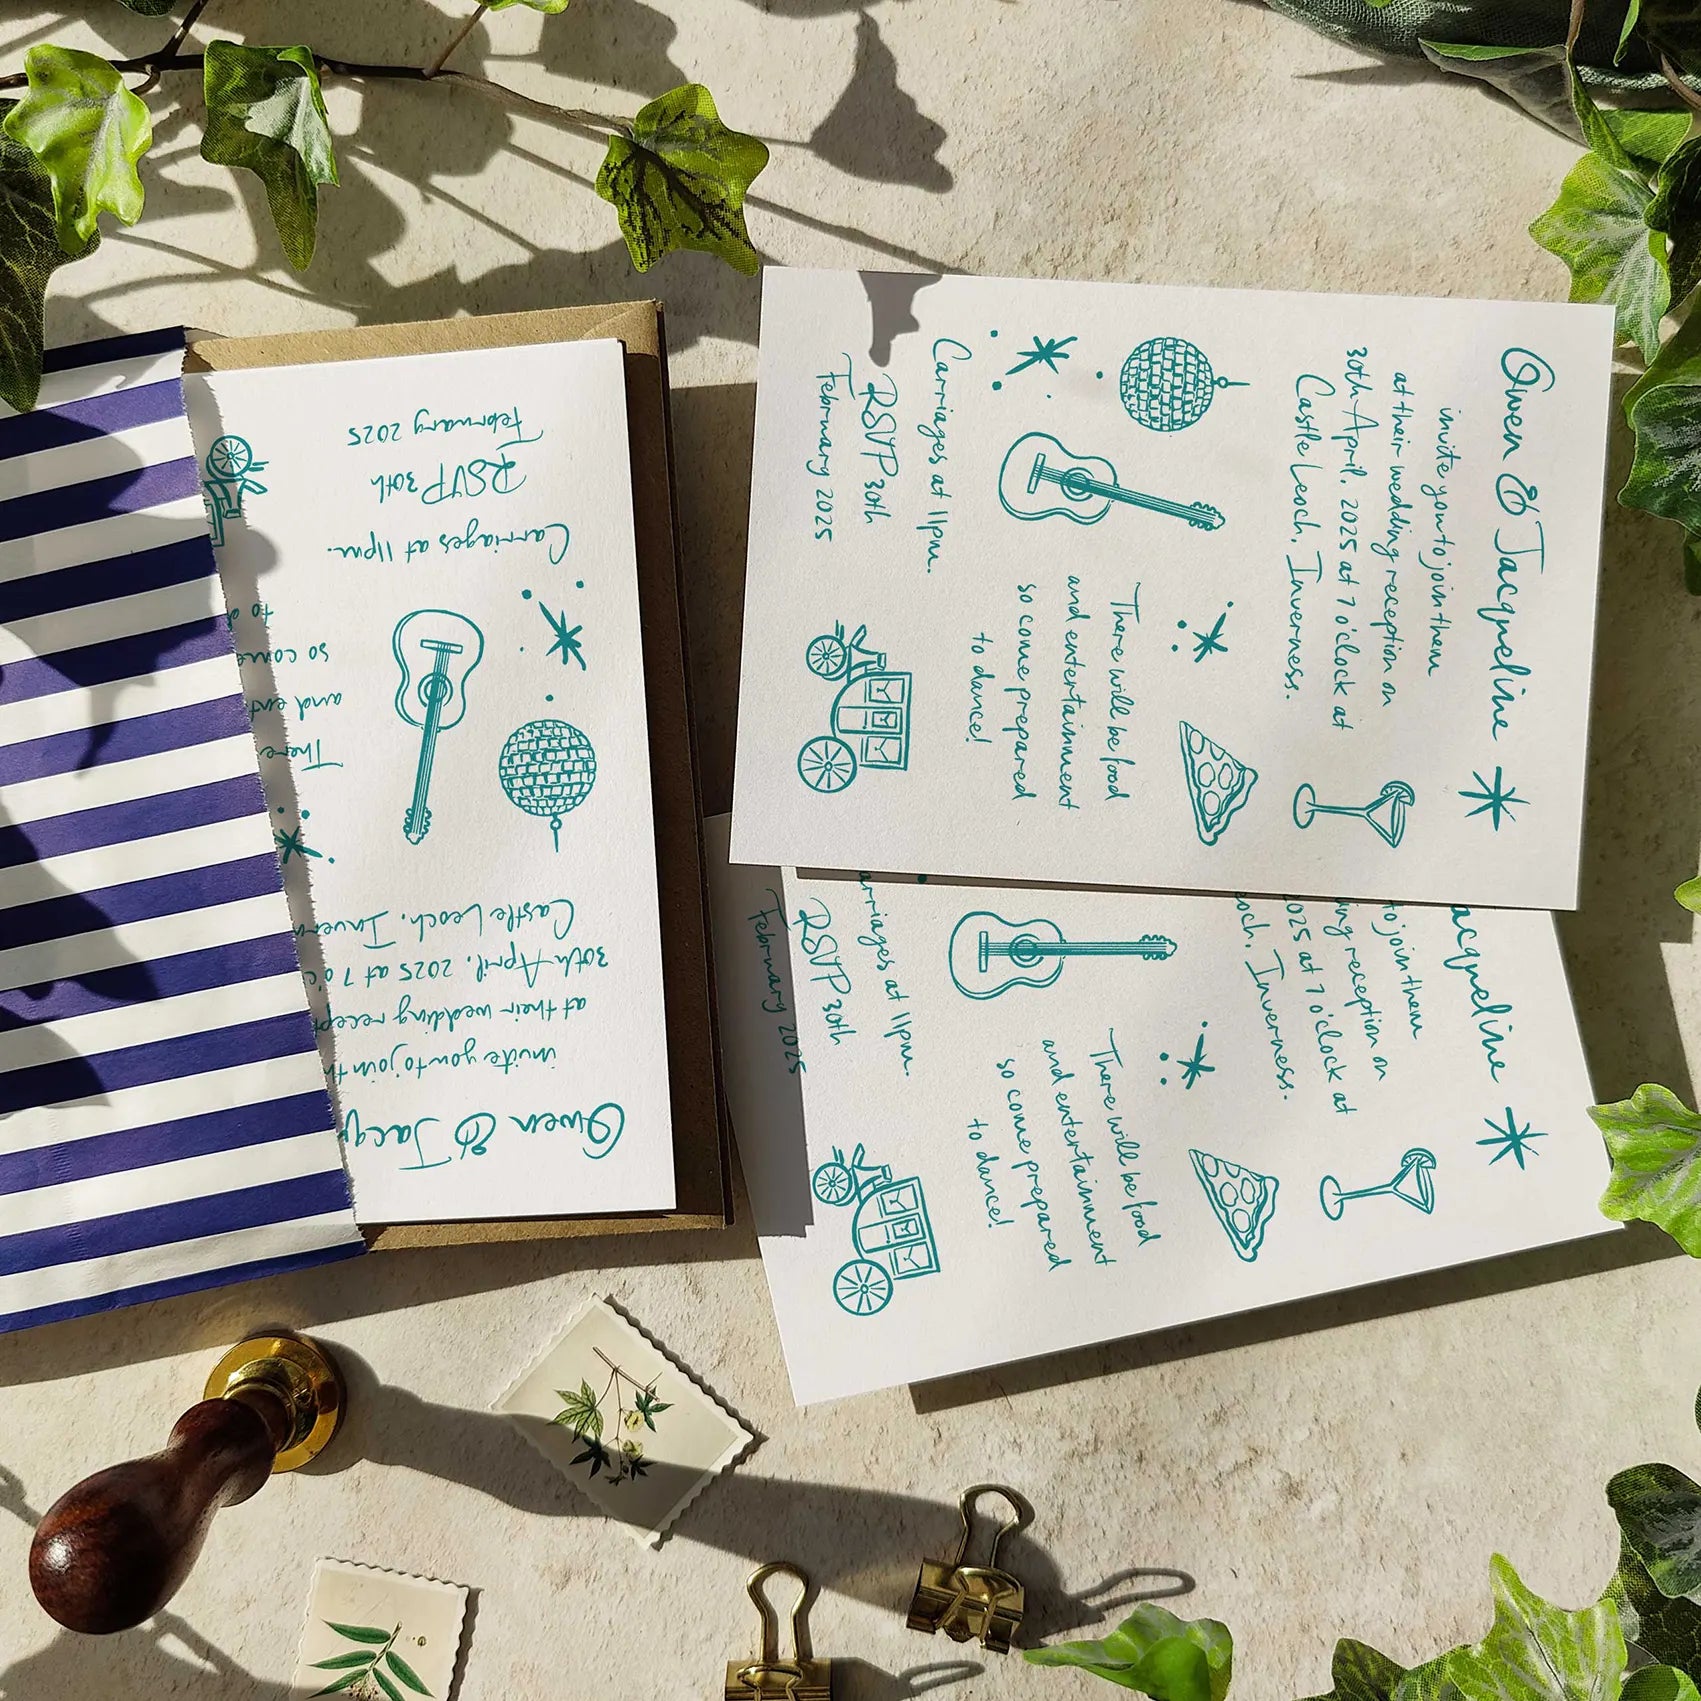 Owen & Jacqueline
invite you to join them
at their wedding reception on
30th April, 2025 at 7 o'clock at
Castle Leoch, Inverness.
There will be food
and entertainment
so come prepared
to dance!
Carriages at 11pm.
RSVP 30th
February 2025
Owen & Jacq
invite you to join th
at their wedding recept
30th April, 2025 at 7 o'c
Castle Leoch, Invern
There
and ent
so come
to d
Carriages at 11pm.
RSVP 30th
February 2025
acqueline
to join them
ng reception on
2025 at 7 o'clock at
eoch, Inverness.
There will be food
and entertainment
so come prepared
to dance!
arriages at 11pm.
RSVP 30th
February 2025